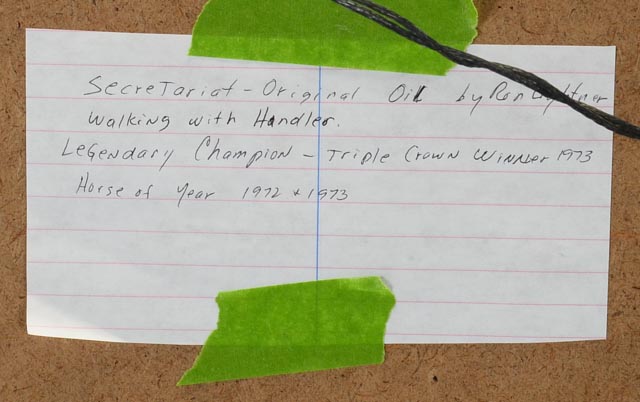 Secretariat - Original Oil by Ron Lightner
Walking with Handler.
Legendary Champion - Triple Crown Winner 1973
Horse of Year 1972 + 1973